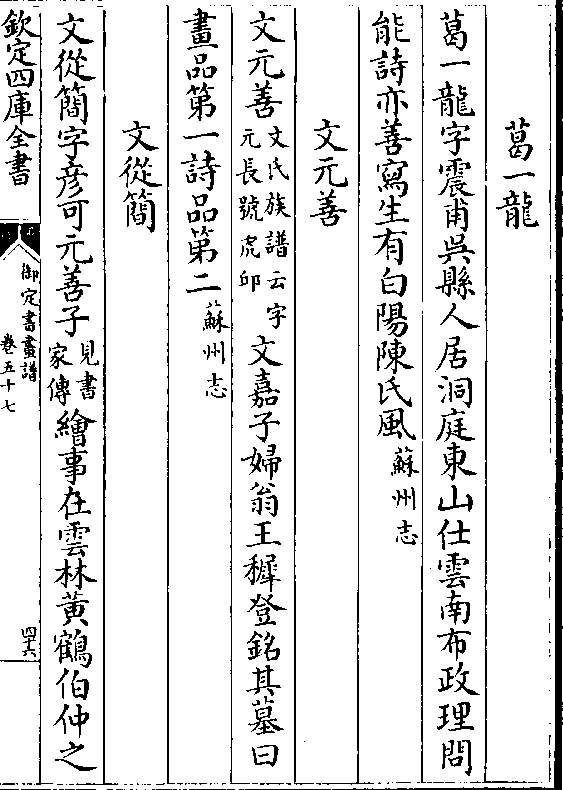 葛一龍
葛一龍字震甫吳縣人居洞庭東山仕雲南布政理問
能詩亦善寫生有白陽陳氏風蘇州志
文元善
文元善文氏族譜云字元長號虎邱文嘉子婦翁王穉登銘其墓曰
畫品第一詩品第二蘇州志
文從簡
文從簡字彦可元善子見書家傳繪事在雲林黃鶴伯仲之
欽定四庫全書
御定書畫譜
卷五十七
四十六